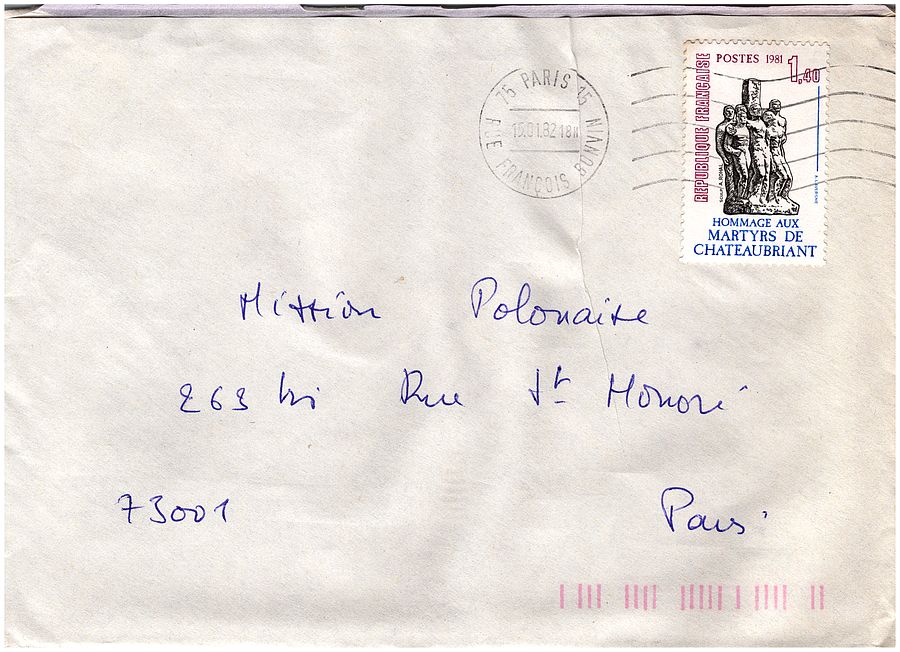 75 PARIS 15
15.01.82-18H
RUE FRANÇOIS BONVIN
POSTES 1981 1,40
REPUBLIQUE FRANÇAISE
HOMMAGE AUX
MARTYRS DE
CHATEAUBRIANT
Mission Polonaise
263 bis Rue St Honoré
73001 Paris